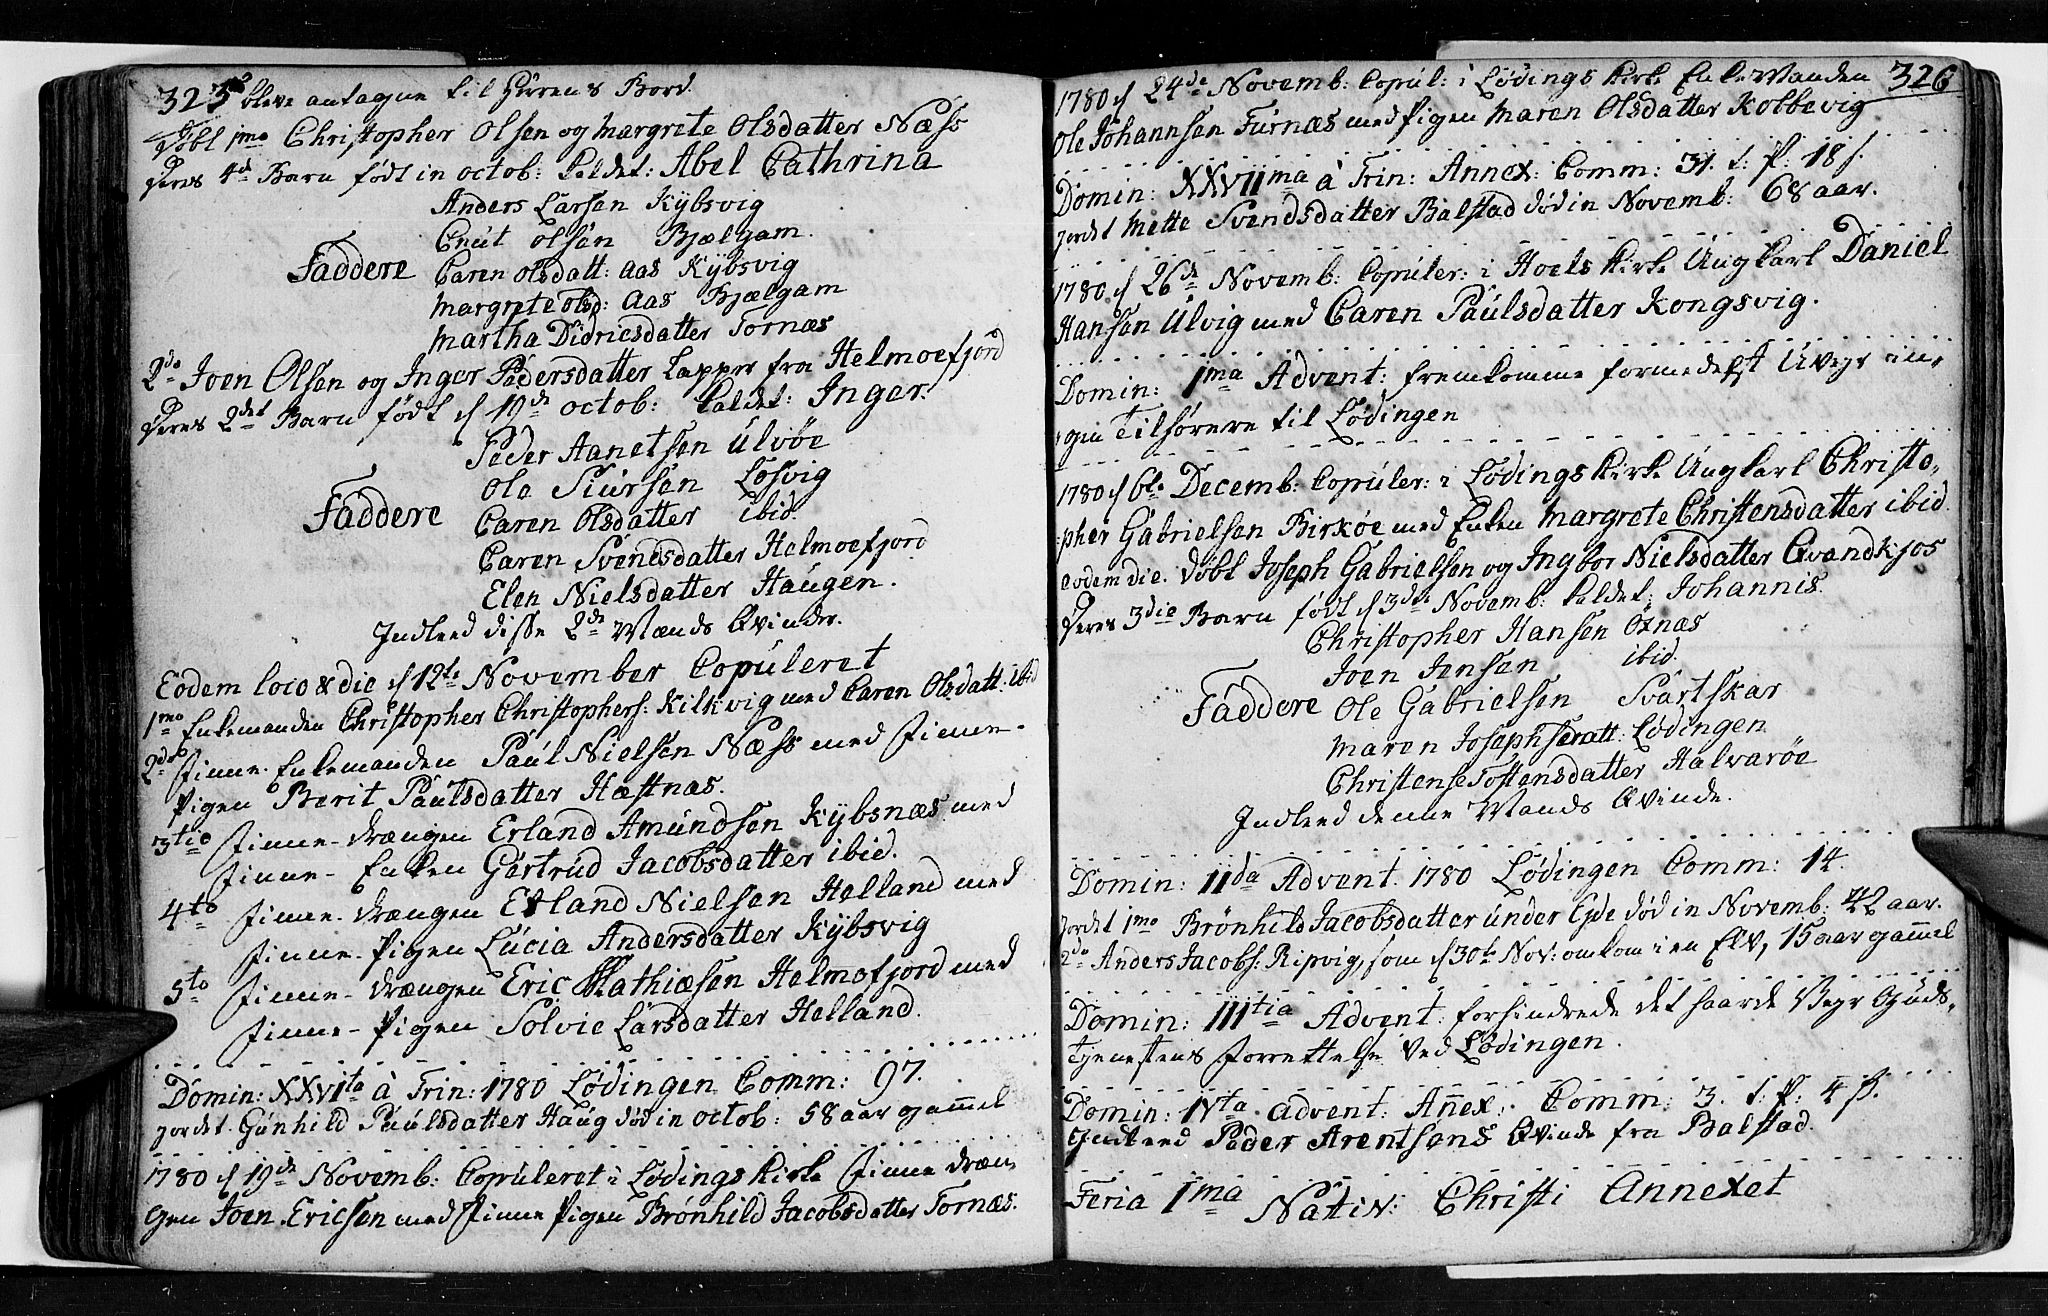 325
bleve antagne til Herrens Bord.
Döbt 1mo Christopher Olsen og Margrete Olsdatter Næss
Deres 4de Barn födt in octob: kaldet: Abel Cathrina
Anders Larsen Kybsvig
Cnut Olsen Bjælgam.
Faddere Caren Olsdatt: Aas Kybsvig
Margrete Olsd: Aas Bjælgam
Martha Didricsdatter Tornæs
2do Joen Olsen og Inger Pedersdatter Lapper fra Helmoefjord
Deres 2det Barn födt d 19de octob: kaldet: Inger.
Peder Aanetsen Ulvöe
Ole Siursen Lösvig
Faddere Caren Olsdatter ibid.
Caren Svendsdatter Helmoefjord
Elen Nielsdatter Haugen.
Indleed disse 2de Mænds Qvinder.
Eodem loco & die d 12te November Copuleret
1mo Enkemanden Christopher Christophers: Kilkvig med Caren Olsdatt: ibid
2do Finne-Enkemanden Paul Nielsen Næss med Finne-
Pigen Berit Paulsdatter Hæstnæs.
3tio Finne-Drængen Erland Amundsen Kybsnæs med
Finne-Enken Gertrud Jacobsdatter ibid.
4to Finne-Drængen Erland Nielsen Helland med
Finne-Pigen Lucia Andersdatter Kybsvig
5to Finne-Drængen Eric Mathiæsen Helmofjord med
Finne-Pigen Solvie Larsdatter Helland.
Domin: XXVIta à Trin: 1780 Lödingen Comm: 97.
Jordet Gunhild Paulsdatter Haug död in octob: 58 aar gammel
1780 d 19de Novemb: Copuleret i Lödings Kirke Finne Dræn-
gen Joen Ericsen med Finne Pigen Brönhild Jacobsdatter Tornæs.
326
1780 d 24de Novemb: Copul: i Lödings Kirke Enkemanden
Ole Johannsen Furnæs med Pigen Maren Olsdatter Kobbevig
Domin: XXVIIma à Trin: Annex: Comm: 31. t: P: 18 s.
Jordet Mette Svendsdatter Balstad död in Novemb: 68 aar.
1780 d 26de Novemb: Copuler: i Hoels Kirke Ungkarl Daniel
Hansen Ulvig med Caren Paulsdatter Kongsvig.
Domin: 1ma Advent: fremkomme formedelst Uveyr in-
gen Tilhörere til Lödingen
1780 d 6te Decemb: Copuler: i Lödings Kirke Ungkarl Christo-
pher Gabrielsen Birköe med Enken Margrete Christensdatter ibid.
Eodem die. Döbt Joseph Gabrielsen og Ingbor Nielsdatter Qvandkjos
Deres 3die Barn födt d 3de Novemb: kaldet: Johannis.
Christopher Hansen Oxnæs
Joen Jensen ibid.
Faddere Ole Gabrielsen Svartskar
Maren Josephsdatt: Lödingen
Christense Tostensdatter Halvaröe
Indleed denne Mands Qvinde.
Domin: IIda Advent. 1780 Lödingen Comm: 14.
Jordet 1mo Brönhild Jacobsdatter under Eyde död in Novemb: 42 aar.
2do Anders Jacobs: Ripvig, som d 30te Nov: omkom i en Elv, 15 aar gammel
Domin: IIItia Advent: forhindrede det haarde Veyr Guds-
Tjenestens Forrettelse ved Lödingen.
Domin: IVta Advent: Annex: Comm: 3. t: P: 4 s.
Indleed Peder Arentsens Qvinde fra Balstad.
Feria 1ma Nativ: Christi Annexet